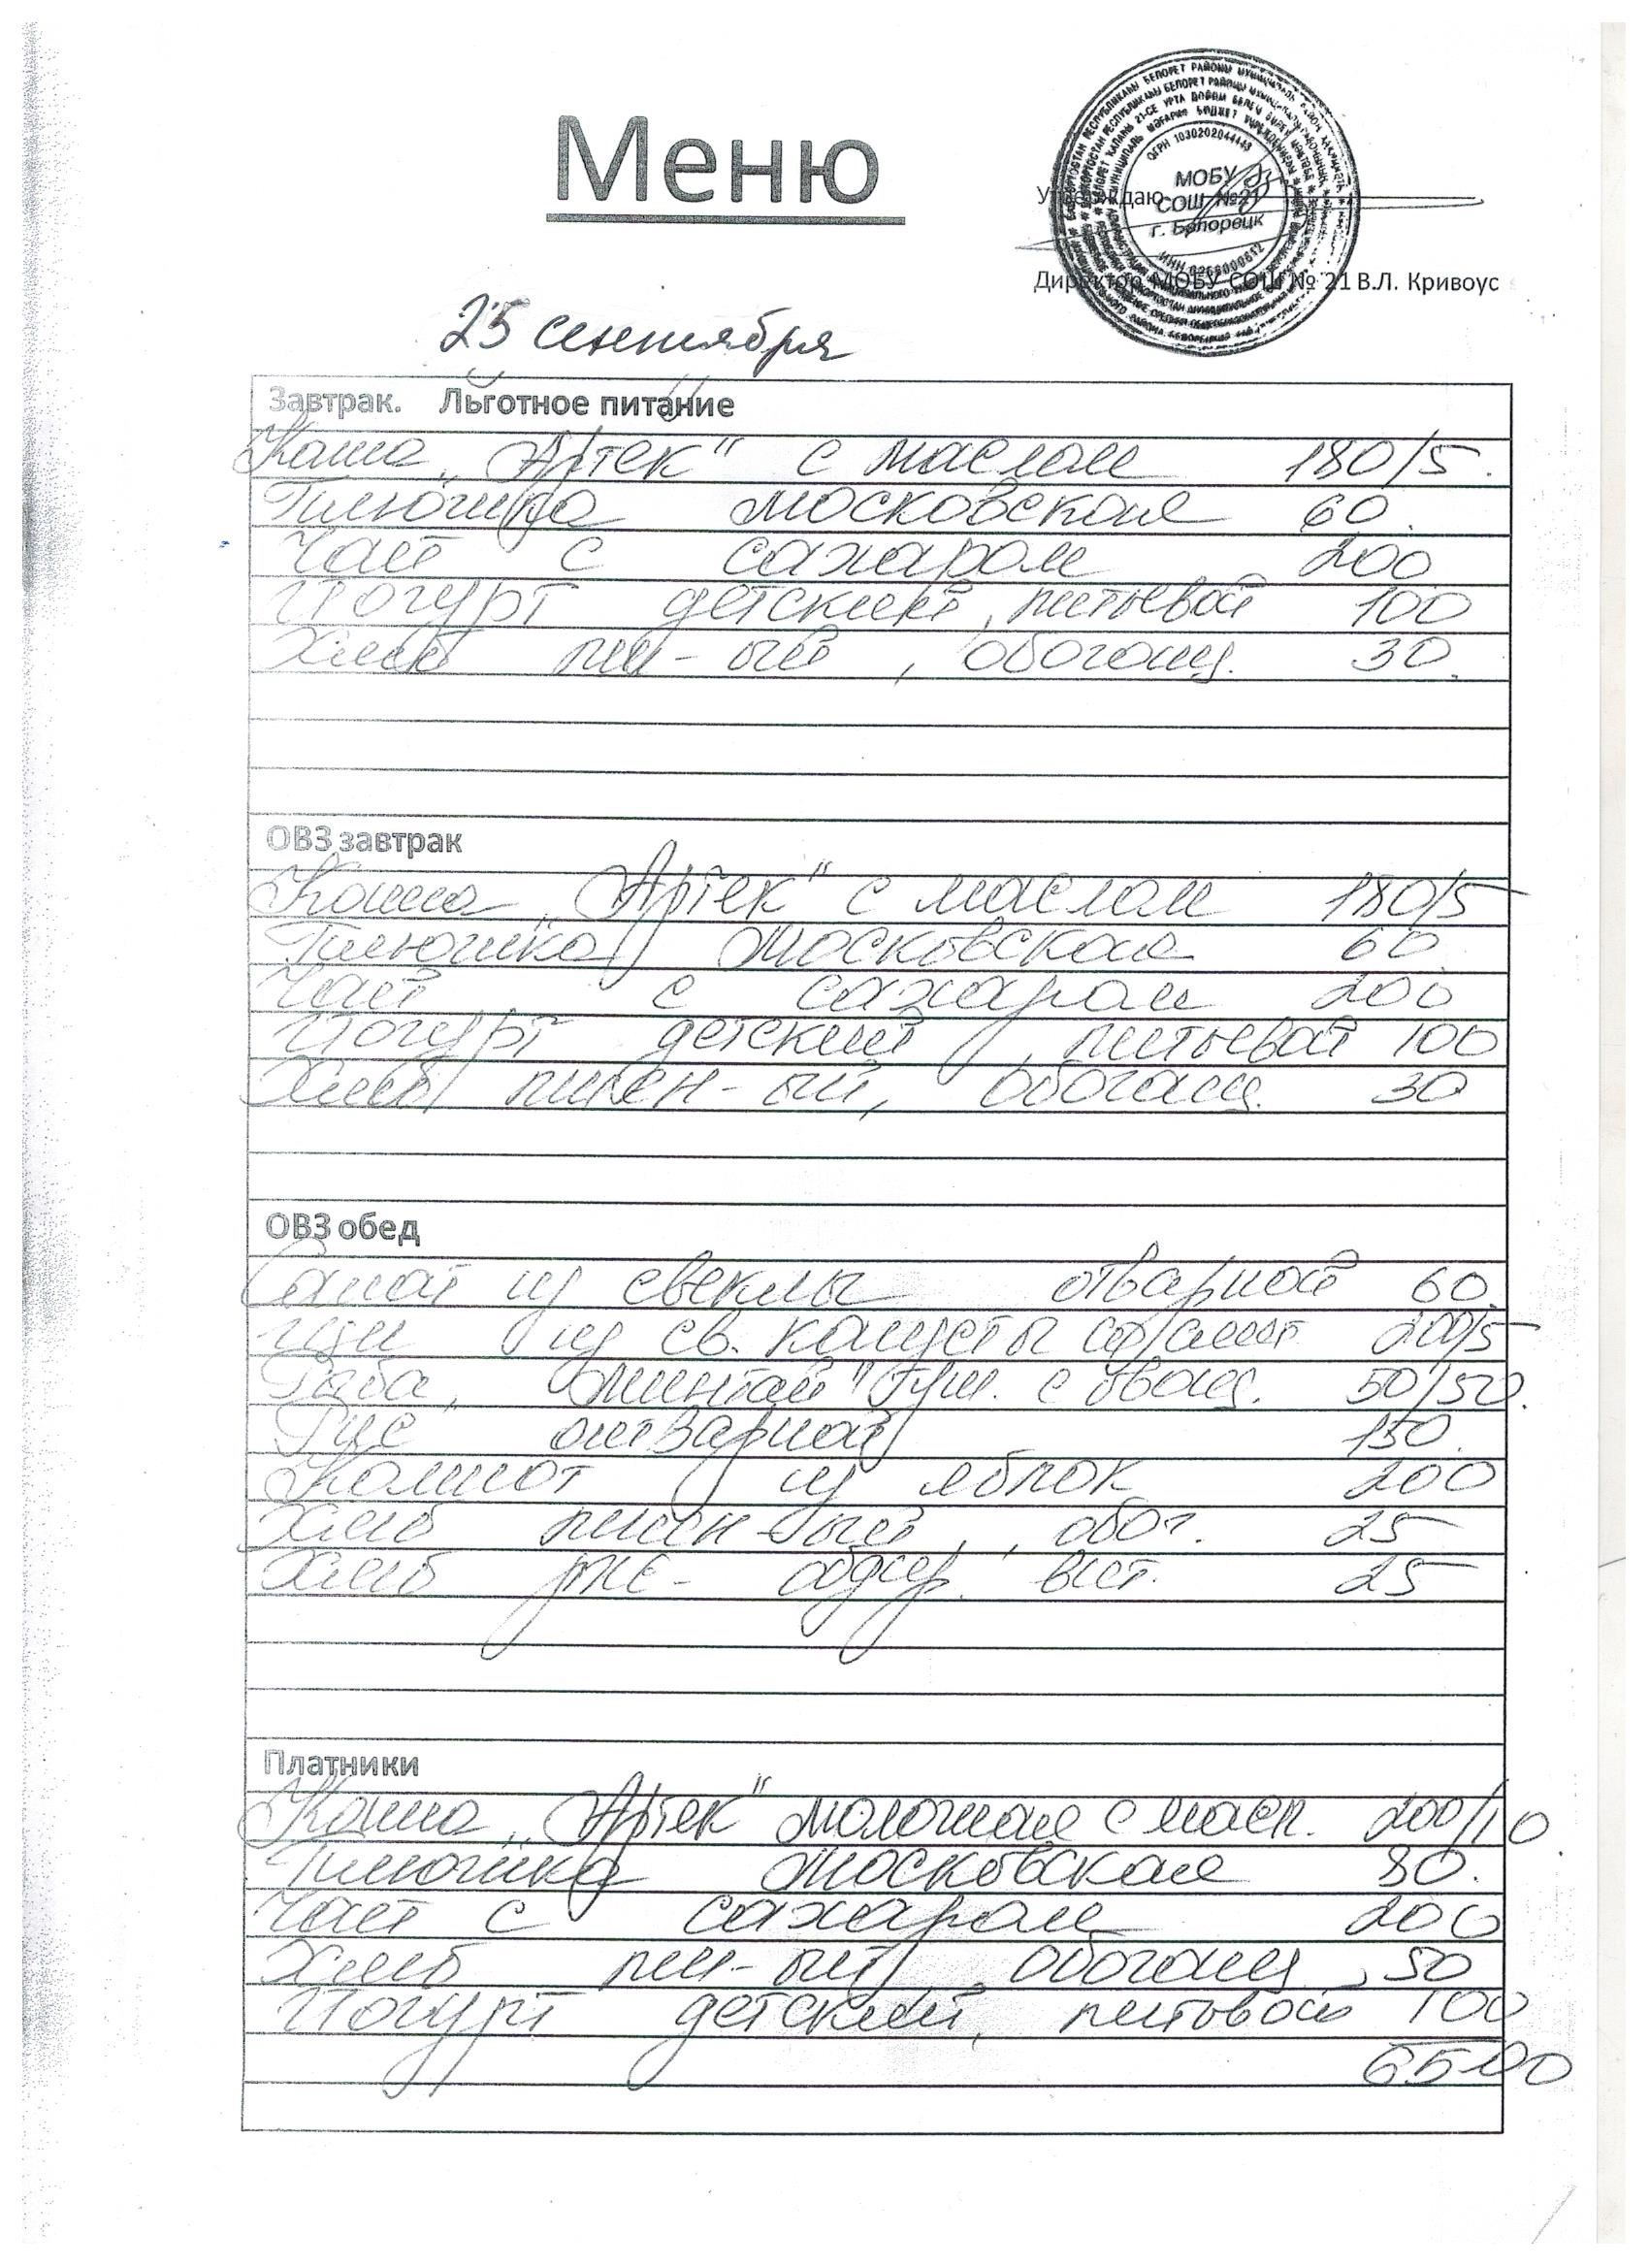 Меню
МОБУ
Утверждаю
СОШ №21
г. Белорецк
ОГРН 1030202044448
Директор МОБУ СОШ № 21 В.Л. Кривоус
25 сентября
Завтрак. Льготное питание
Каша "Артек" с маслом 180/5.
Плюшка московская 60.
Чай с сахаром 200
Йогурт детский, питьевой 100
Хлеб пш-ый, обогащ. 30.
ОВЗ завтрак
Каша "Артек" с маслом 180/5
Плюшка московская 60
Чай с сахаром 200
Йогурт детский, питьевой 100
Хлеб пшен-ый, обогащ. 30
ОВЗ обед
Салат из свеклы отварной 60
Щи из св. капусты со смет 200/5
Рыба "Минтай" туш. с овощ. 50/50.
Рис отварной 150.
Компот из яблок 200
Хлеб пшен-ый, обог. 25
Хлеб рже- обдир. вит. 25
Платники
Каша "Артек" молочная с масл. 200/10
Плюшка московская 80.
Чай с сахаром 200
Хлеб пш-ый, обогащ, 50
Йогурт детский, питьевой 100